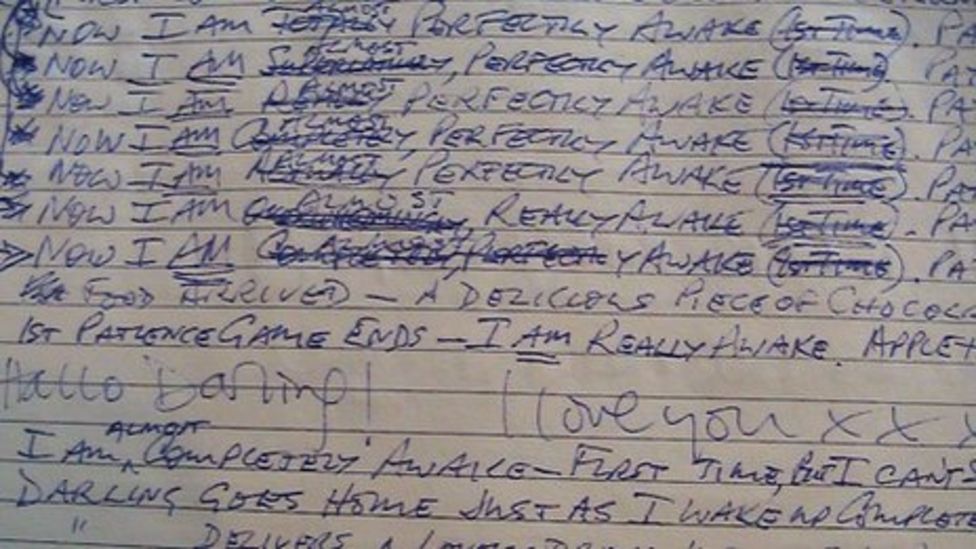 NOW I AM TOTALLY ALMOST PERFECTLY AWAKE (1ST TIME). PA
NOW I AM ALMOST, PERFECTLY AWAKE (1ST TIME). PA
NOW I AM REALLY ALMOST PERFECTLY AWAKE (1ST TIME). PA
NOW I AM COMPLETELY ALMOST, PERFECTLY AWAKE (1ST TIME). PA
NOW I AM ALMOST PERFECTLY AWAKE (1ST TIME). PA
NOW I AM ALMOST, REALLY AWAKE (1ST TIME). PA
NOW I AM COMPLETELY, PERFECTLY AWAKE (1ST TIME). PA
FOOD ARRIVED – A DELICIOUS PIECE OF CHOCOL
1ST PATIENCE GAME ENDS – I AM REALLY AWAKE. APPLET
Hallo Darling! I love you x x x
I AM ALMOST COMPLETELY AWAKE – FIRST TIME, BUT I CAN'T
DARLING GOES HOME JUST AS I WAKE UP COMPLETE
" DELIVERS A